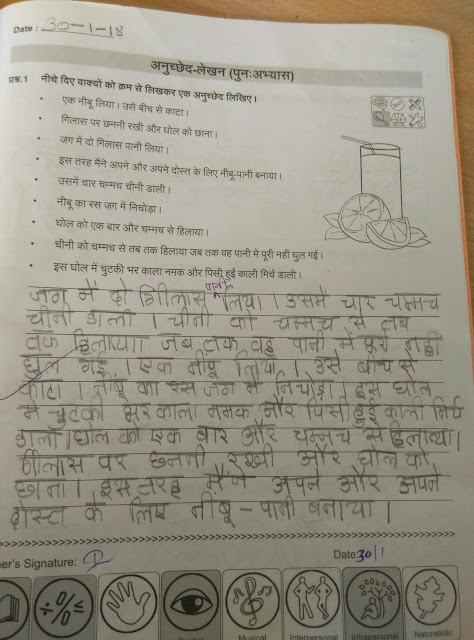 Date : 30-1-18
अनुच्छेद-लेखन (पुनःअभ्यास)
प्रश्न.1 नीचे दिए वाक्यों को क्रम से लिखकर एक अनुच्छेद लिखिए।
• एक नीबू लिया। उसे बीच से काटा।
• गिलास पर छननी रखी और घोल को छाना।
• जग में दो गिलास पानी लिया।
• इस तरह मैंने अपने और अपने दोस्त के लिए नीबू-पानी बनाया।
• उसमें चार चम्मच चीनी डाली।
• नीबू का रस जग में निचोड़ा।
• घोल को एक बार और चम्मच से हिलाया।
• चीनी को चम्मच से तब तक हिलाया जब तक वह पानी में पूरी नहीं घुल गई।
• इस घोल में चुटकी भर काला नमक और पिसी हुई काली मिर्च डाली।
जग में दो गिलास पानी लिया। उसमें चार चम्मच
चीनी डाली। चीनी को चम्मच से तब
तक हिलाया जब तक वह पानी में पूरी नही
घुल गई। एक नीबू लिया। उसे बीच से
काटा। नीबू का रस जग में निचोड़ा। इस घोल
में चुटकी भर काला नमक और पिसी हुई काली मिर्च
डाली। घोल को एक बार और चम्मच से हिलाया।
गिलास पर छननी रखी और घोल को
छाना। इस तरह मैंने अपने और अपने
दोस्त के लिए नीबू-पानी बनाया।
er's Signature:
Date: 30/1
Musical Interpersonal Intrapersonal Naturalistic